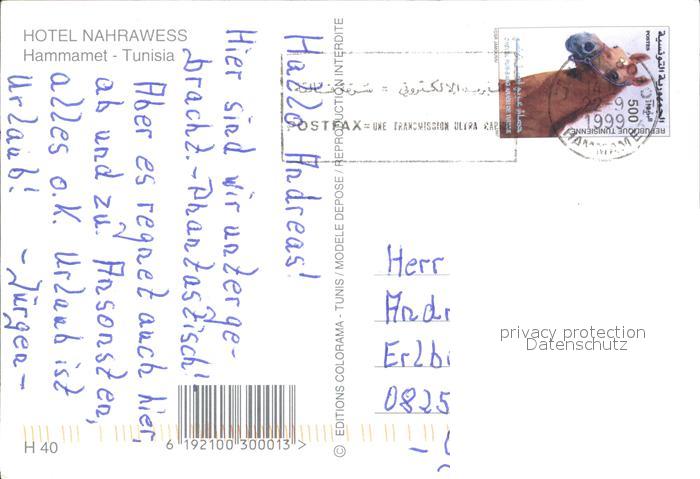 HOTEL NAHRAWESS
Hammamet - Tunisia
Hallo Andreas!
Hier sind wir unterge-
bracht. - Phantastisch!
Aber es regnet auch hier,
ab und zu. Ansonsten,
alles o.K. Urlaub ist
Urlaub! - Jürgen -
H 40
6 192100 300013 >
© EDITIONS COLORAMA - TUNIS / MODELE DEPOSE / REPRODUCTION INTERDITE
POSTFAX = UNE TRANSMISSION ULTRA RAP
22-9
1999
HAMMAME
الجمهورية التونسية
POSTES
500
REPUBLIQUE TUNISIENNE
Herr
Andr
Erlbi
0825
privacy protection
Datenschutz